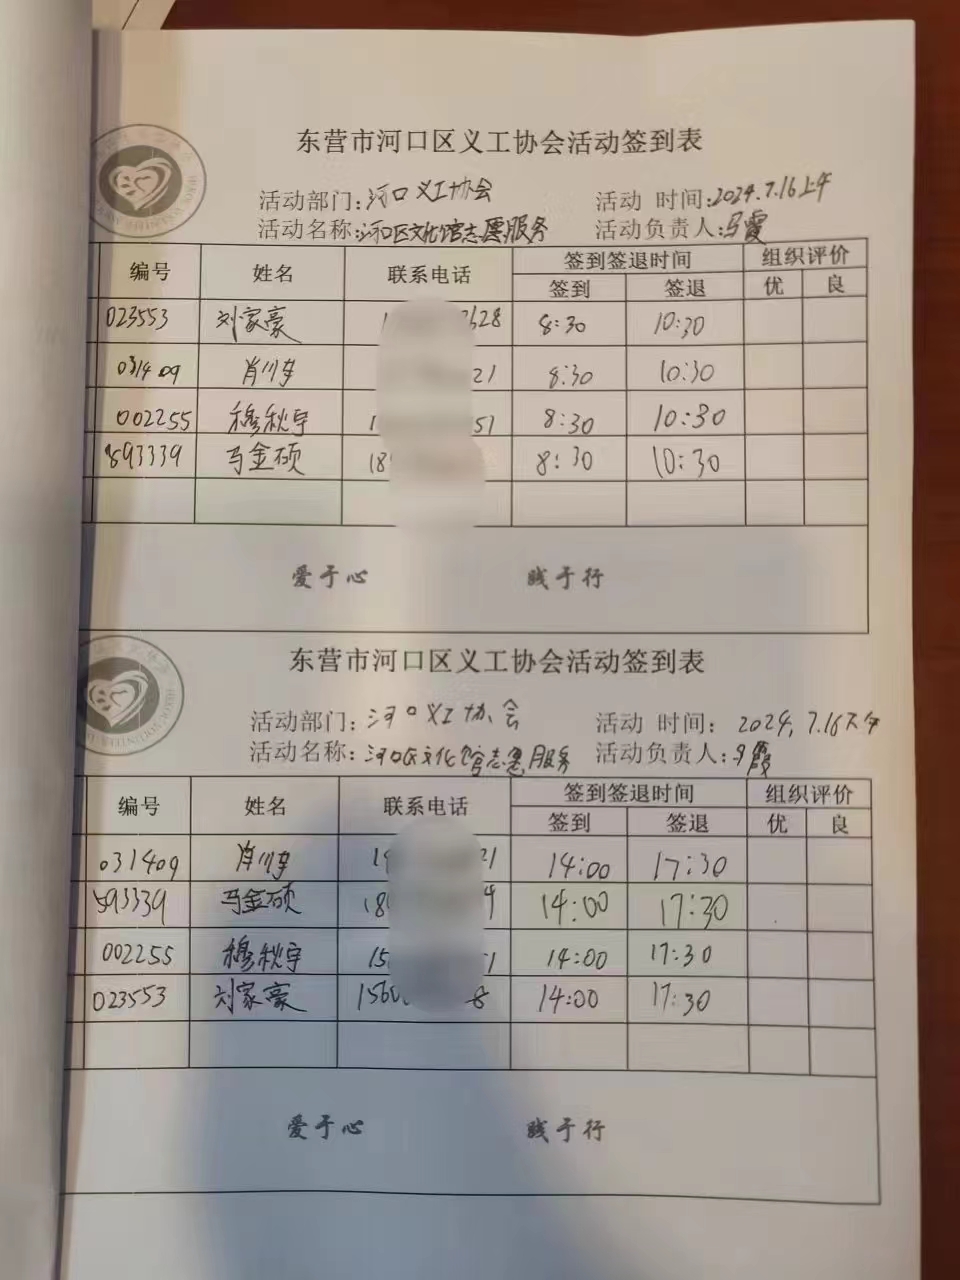 东营市河口区义工协会活动签到表
活动部门:河口义工协会 活动 时间:2024.7.16上午
活动名称:河口区文化馆志愿服务 活动负责人:马霞
编号 姓名 联系电话 签到签退时间 组织评价
签到 签退 优 良
023553 刘家豪 1 3628 8:30 10:30
031409 肖川 21 8:30 10:30
002255 穆秋宇 1 51 8:30 10:30
893339 马金硕 18 8:30 10:30
爱于心 践于行
东营市河口区义工协会活动签到表
活动部门:河口义工协会 活动 时间: 2024,7.16下午
活动名称:河口区文化馆志愿服务 活动负责人:马霞
编号 姓名 联系电话 签到签退时间 组织评价
签到 签退 优 良
031409 肖川 1 21 14:00 17:30
593339 马金硕 18 9 14:00 17:30
002255 穆秋宇 15 51 14:00 17:30
023553 刘家豪 156 8 14:00 17:30
爱于心 践于行